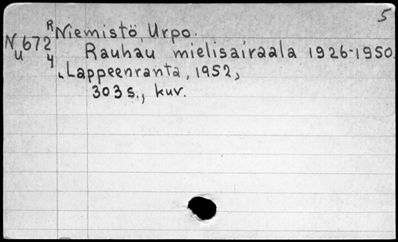 5
R Niemistö, Urpo.
Nu 672 4 Rauhau mielisairaala 1926-1950.
Lappeenranta, 1952,
303 s., kuv.